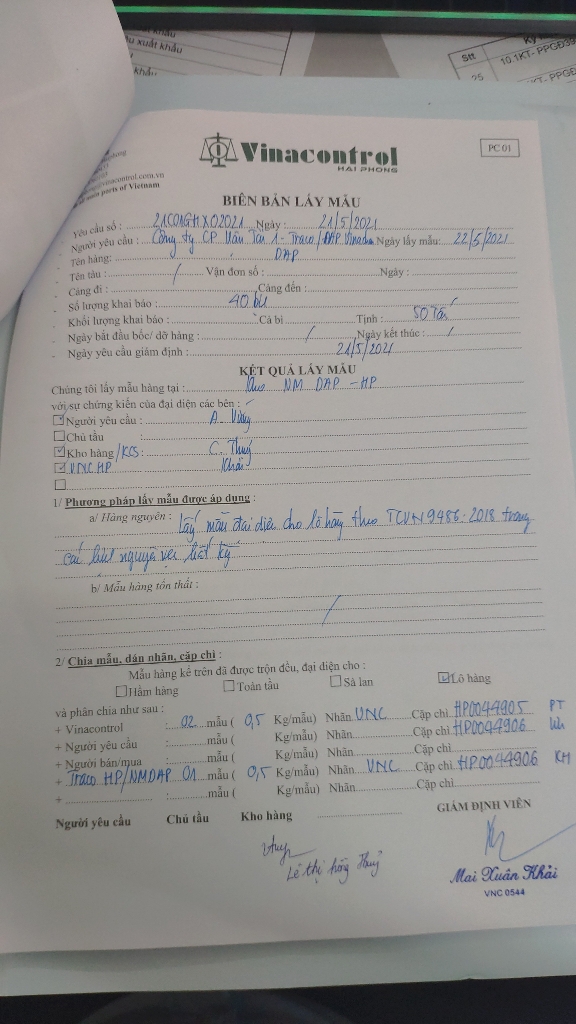 u xuất khẩu
khẩu
Stt
10.1KT- PPGĐ39
25
KT- PPGĐ
Vinacontrol
HAI PHONG
PC 01
vinacontrol.com.vn
ports of Vietnam
BIÊN BẢN LẤY MẪU
Yêu cầu số : Ngày : 21/5/2021
Người yêu cầu : Công ty CP Vận Tải 1- Traco/DAP Ngày lấy mẫu: 22/5/2021
Tên hàng: DAP
Tên tàu : / Vận đơn số : Ngày :
Cảng đi : Cảng đến :
Số lượng khai báo : 40 /
Khối lượng khai báo : Cả bì Tịnh : 50 Tấn
Ngày bắt đầu bốc/ dỡ hàng : / Ngày kết thúc : /
Ngày yêu cầu giám định : 21/5/2021
KẾT QUẢ LẤY MẪU
Chúng tôi lấy mẫu hàng tại : Kho NM DAP -HP
với sự chứng kiến của đại diện các bên :
Người yêu cầu : A.
Chủ tầu :
Kho hàng /KCS : C. Thuỷ
VNC HP Khải
1/ Phương pháp lấy mẫu được áp dụng :
a/ Hàng nguyên : Lấy mẫu đại diện cho lô hàng theo TCVN 9486:2018 trong
các nguyên vẹn bất kỳ
b/ Mẫu hàng tổn thất :
/
2/ Chia mẫu, dán nhãn, cặp chì :
Mẫu hàng kể trên đã được trộn đều, đại diện cho :
Hầm hàng Toàn tầu Sà lan Lô hàng
và phân chia như sau :
+ Vinacontrol : 02 mẫu ( 0,5 Kg/mẫu) Nhãn VNC Cặp chì HP0044905 PT
+ Người yêu cầu : mẫu ( Kg/mẫu) Nhãn Cặp chì HP0044906
+ Người bán/mua : mẫu ( Kg/mẫu) Nhãn Cặp chì
+ Traco HP/NMDAP 01 mẫu ( 0,5 Kg/mẫu) Nhãn VNC Cặp chì HP0044906 KH
+ : mẫu ( Kg/mẫu) Nhãn Cặp chì
GIÁM ĐỊNH VIÊN
Người yêu cầu Chủ tầu Kho hàng
Lê thị hồng Thuỷ
Mai Xuân Khải
VNC 0544